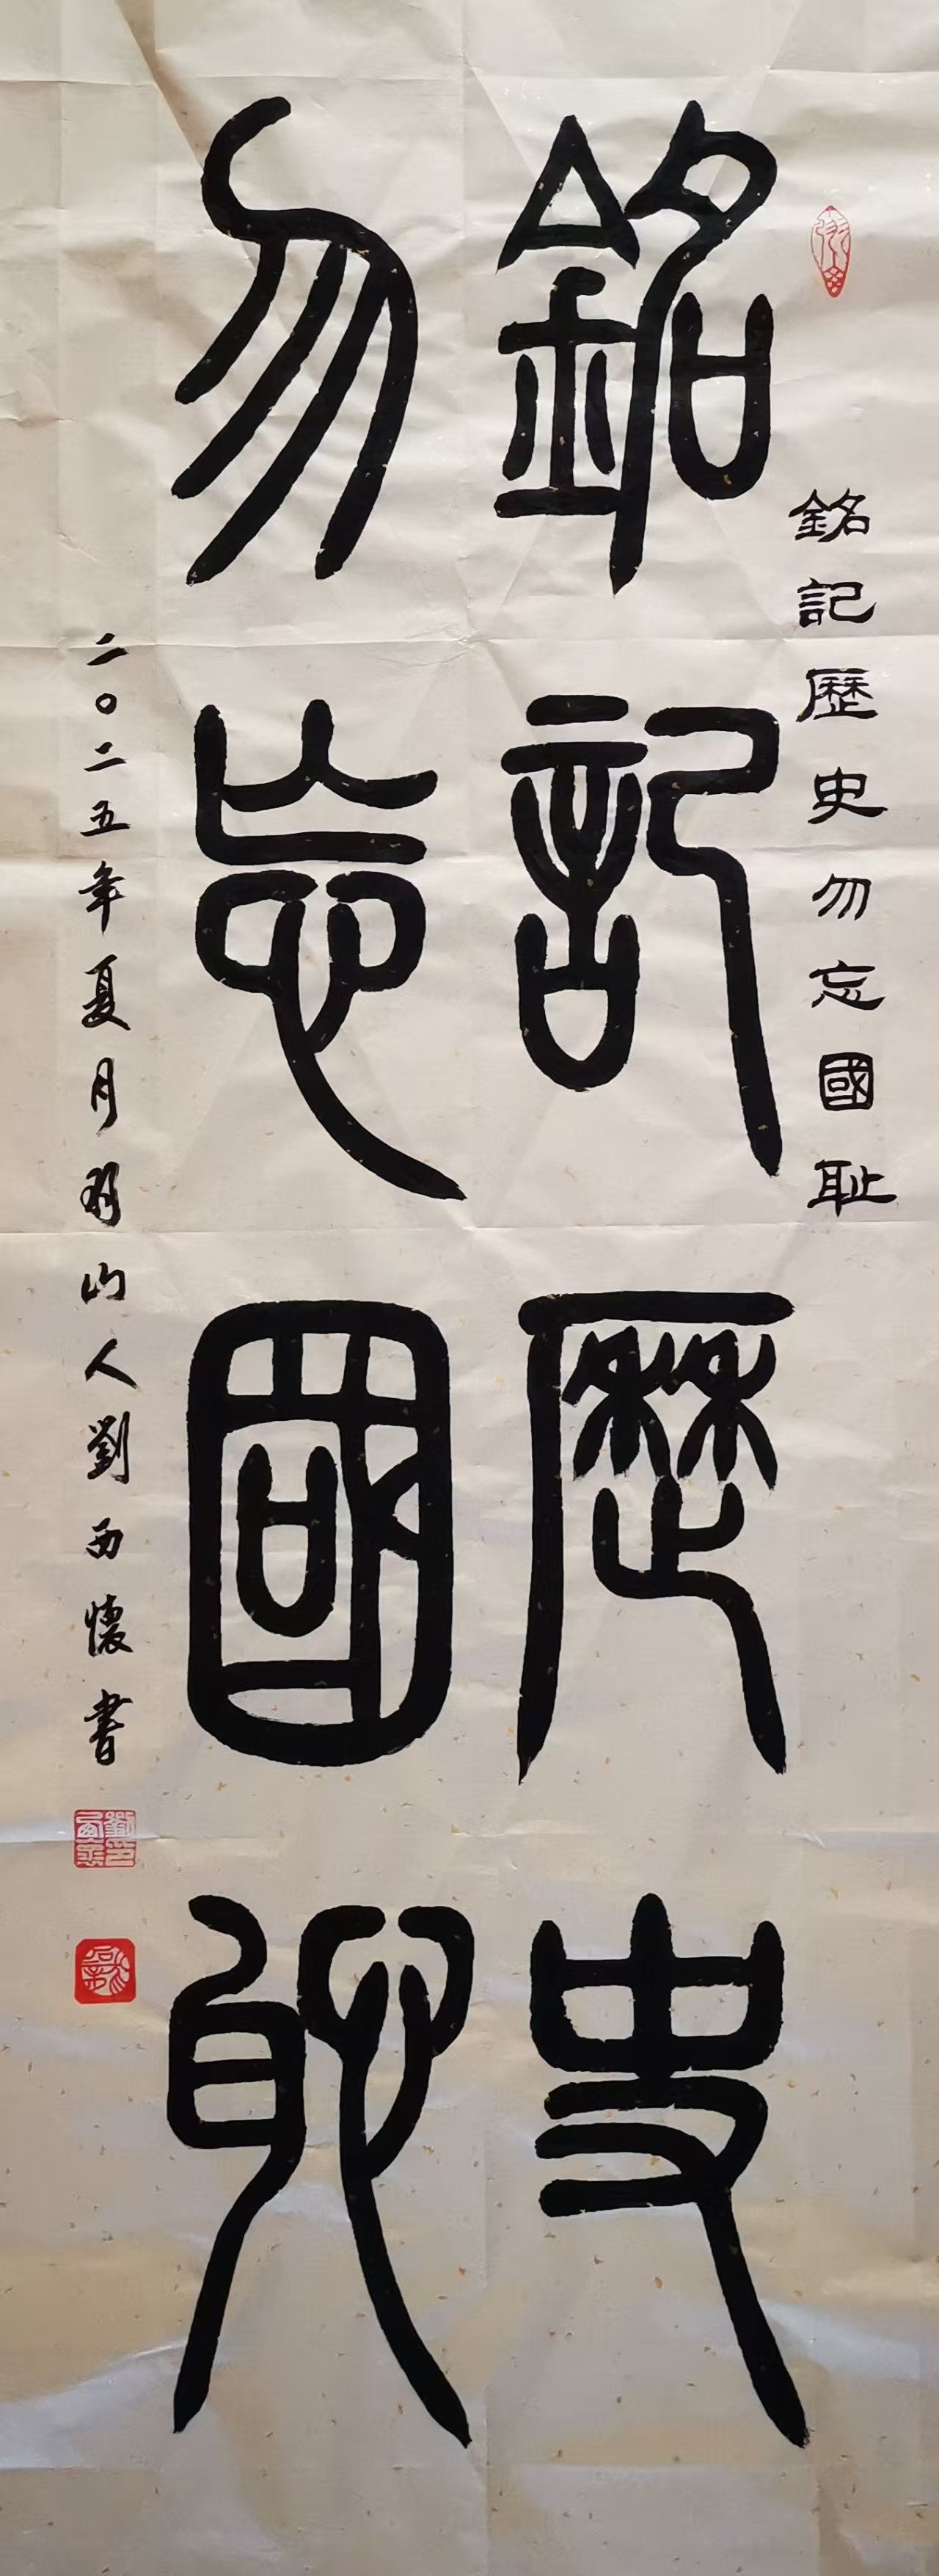 銘記歷史勿忘國耻
銘記歷史
勿忘國耻
二〇二五年夏月
山人劉西懷書